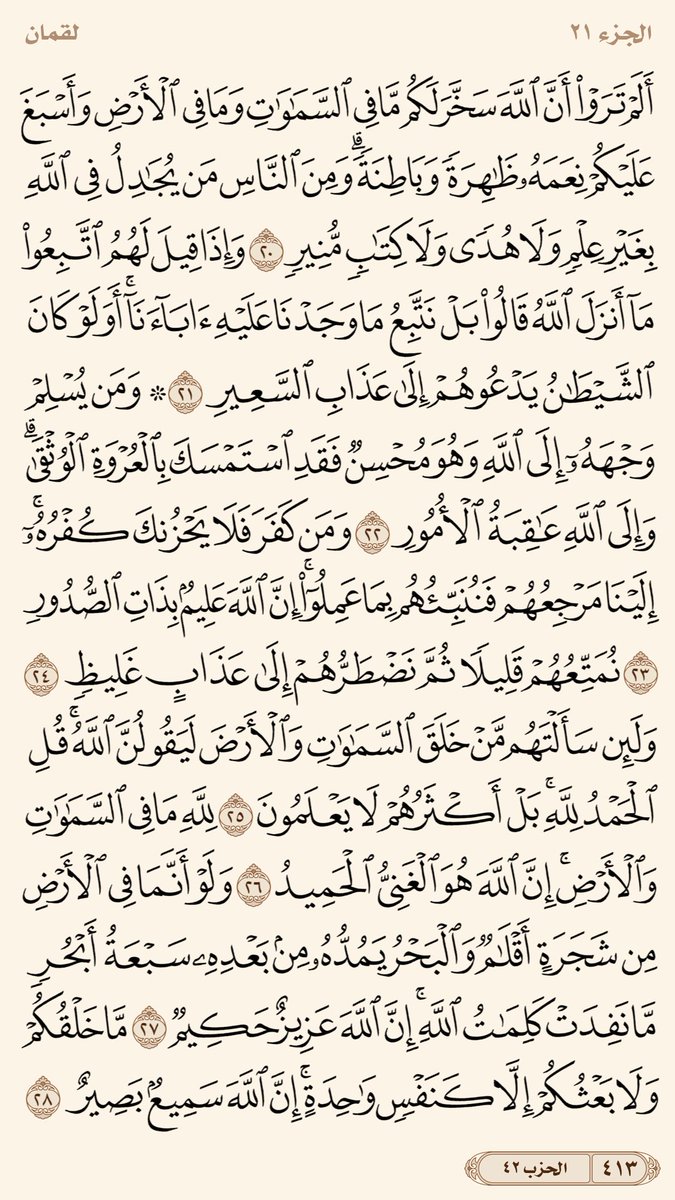 الجزء ٢١ لقمان
أَلَمۡ تَرَوۡاْ أَنَّ ٱللَّهَ سَخَّرَ لَكُم مَّا فِي ٱلسَّمَٰوَٰتِ وَمَا فِي ٱلۡأَرۡضِ وَأَسۡبَغَ
عَلَيۡكُمۡ نِعَمَهُۥ ظَٰهِرَةٗ وَبَاطِنَةٗۗ وَمِنَ ٱلنَّاسِ مَن يُجَٰدِلُ فِي ٱللَّهِ
بِغَيۡرِ عِلۡمٖ وَلَا هُدٗى وَلَا كِتَٰبٖ مُّنِيرٖ ٢٠ وَإِذَا قِيلَ لَهُمُ ٱتَّبِعُواْ
مَآ أَنزَلَ ٱللَّهُ قَالُواْ بَلۡ نَتَّبِعُ مَا وَجَدۡنَا عَلَيۡهِ ءَابَآءَنَآۚ أَوَلَوۡ كَانَ
ٱلشَّيۡطَٰنُ يَدۡعُوهُمۡ إِلَىٰ عَذَابِ ٱلسَّعِيرِ ٢١ ۞ وَمَن يُسۡلِمۡ
وَجۡهَهُۥٓ إِلَى ٱللَّهِ وَهُوَ مُحۡسِنٞ فَقَدِ ٱسۡتَمۡسَكَ بِٱلۡعُرۡوَةِ ٱلۡوُثۡقَىٰۗ
وَإِلَى ٱللَّهِ عَٰقِبَةُ ٱلۡأُمُورِ ٢٢ وَمَن كَفَرَ فَلَا يَحۡزُنكَ كُفۡرُهُۥٓۚ
إِلَيۡنَا مَرۡجِعُهُمۡ فَنُنَبِّئُهُم بِمَا عَمِلُوٓاْۚ إِنَّ ٱللَّهَ عَلِيمُۢ بِذَاتِ ٱلصُّدُورِ
٢٣ نُمَتِّعُهُمۡ قَلِيلٗا ثُمَّ نَضۡطَرُّهُمۡ إِلَىٰ عَذَابٍ غَلِيظٖ ٢٤
وَلَئِن سَأَلۡتَهُم مَّنۡ خَلَقَ ٱلسَّمَٰوَٰتِ وَٱلۡأَرۡضَ لَيَقُولُنَّ ٱللَّهُۚ قُلِ
ٱلۡحَمۡدُ لِلَّهِۚ بَلۡ أَكۡثَرُهُمۡ لَا يَعۡلَمُونَ ٢٥ لِلَّهِ مَا فِي ٱلسَّمَٰوَٰتِ
وَٱلۡأَرۡضِۚ إِنَّ ٱللَّهَ هُوَ ٱلۡغَنِيُّ ٱلۡحَمِيدُ ٢٦ وَلَوۡ أَنَّمَا فِي ٱلۡأَرۡضِ
مِن شَجَرَةٍ أَقۡلَٰمٞ وَٱلۡبَحۡرُ يَمُدُّهُۥ مِنۢ بَعۡدِهِۦ سَبۡعَةُ أَبۡحُرٖ
مَّا نَفِدَتۡ كَلِمَٰتُ ٱللَّهِۚ إِنَّ ٱللَّهَ عَزِيزٌ حَكِيمٞ ٢٧ مَّا خَلۡقُكُمۡ
وَلَا بَعۡثُكُمۡ إِلَّا كَنَفۡسٖ وَٰحِدَةٍۚ إِنَّ ٱللَّهَ سَمِيعُۢ بَصِيرٌ ٢٨
٤١٣ الحزب ٤٢